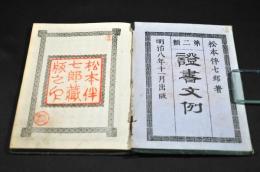 松本伴七郎著
第二輯
證書文例
明治八年十一月出版
松本伴
七郎藏
版之印